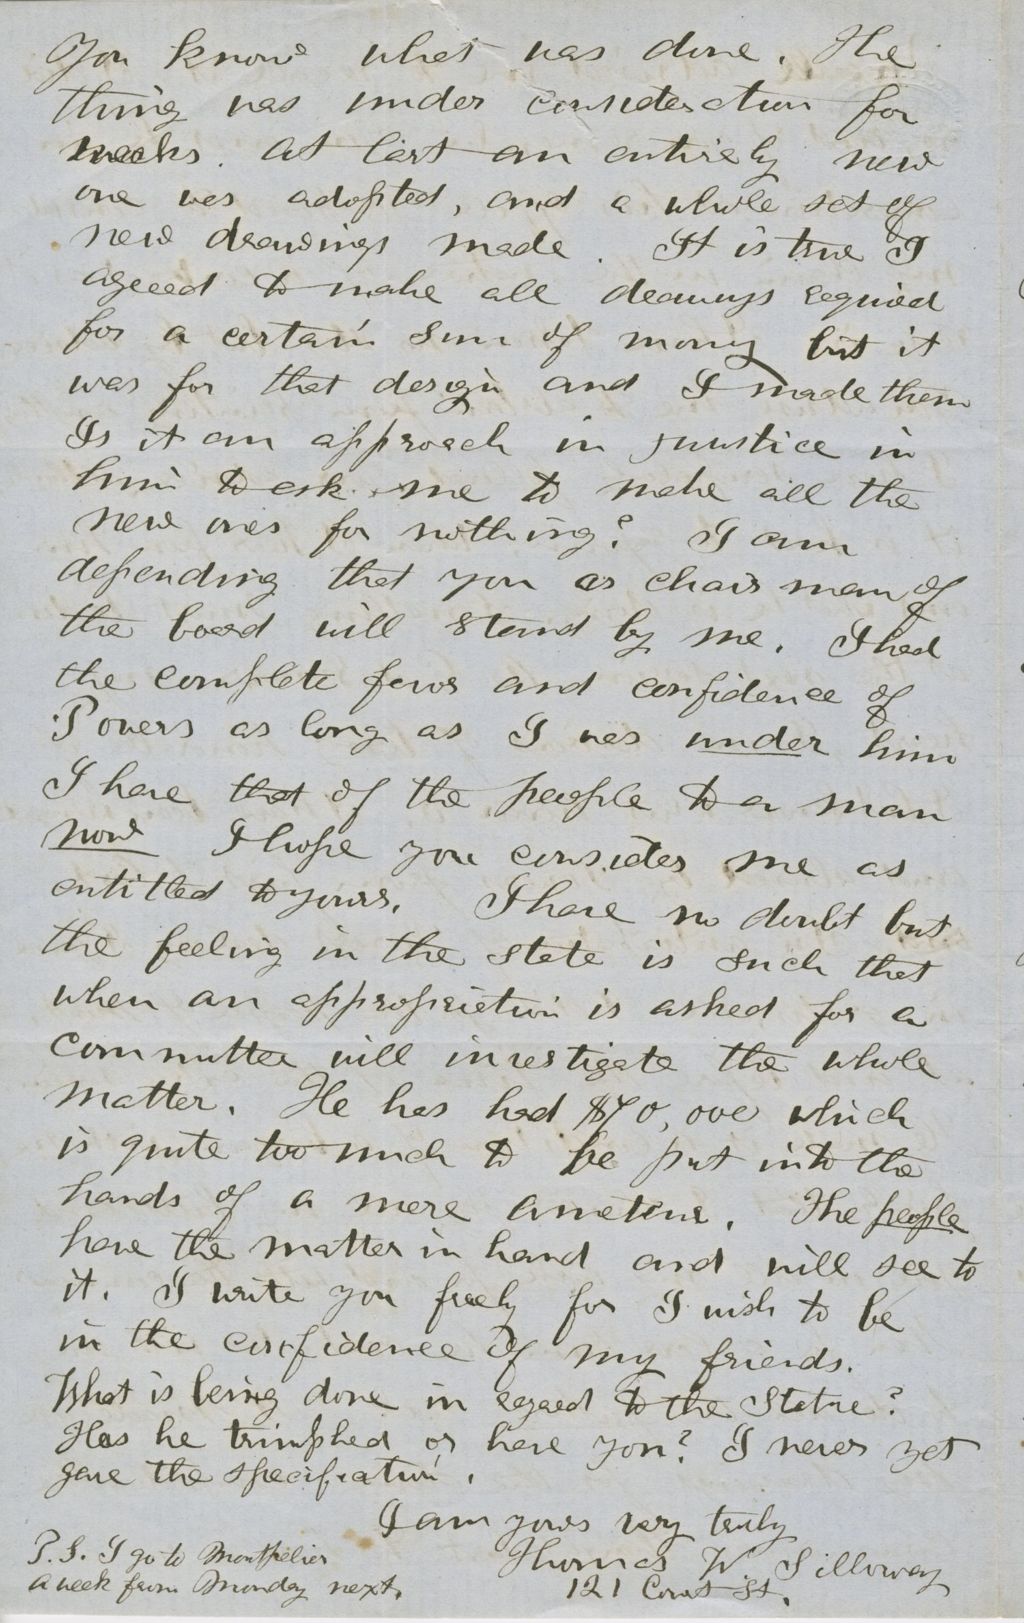 You know what was done. The
thing was under consideration for
weeks. At last an entirely new
one was adopted, and a whole set of
new drawings made. It is true I
agreed to make all drawings required
for a certain sum of money but it
was for that design and I made them
Is it an approach in justice in
him to ask me to make all the
new ones for nothing? I am
depending that you as chairman of
the board will stand by me. I had
the complete favor and confidence of
Powers as long as I was under him
I have that of the people to a man
now I hope you consider me as
entitled to yours. I have no doubt but
the feeling in the state is such that
when an appropriation is asked for a
committee will investigate the whole
matter. He has had $70,000 which
is quite too much to be put into the
hands of a mere ameteur. The people
have the matter in hand and will see to
it. I write you freely for I wish to be
in the confidence of my friends.
What is being done in regard to the Statue?
Has he triumphed or have you? I never yet
gave the specification.
I am yours very truly
Thomas W Silloway
121 Court St.
P.S. I go to Montpelier
a week from Monday next.